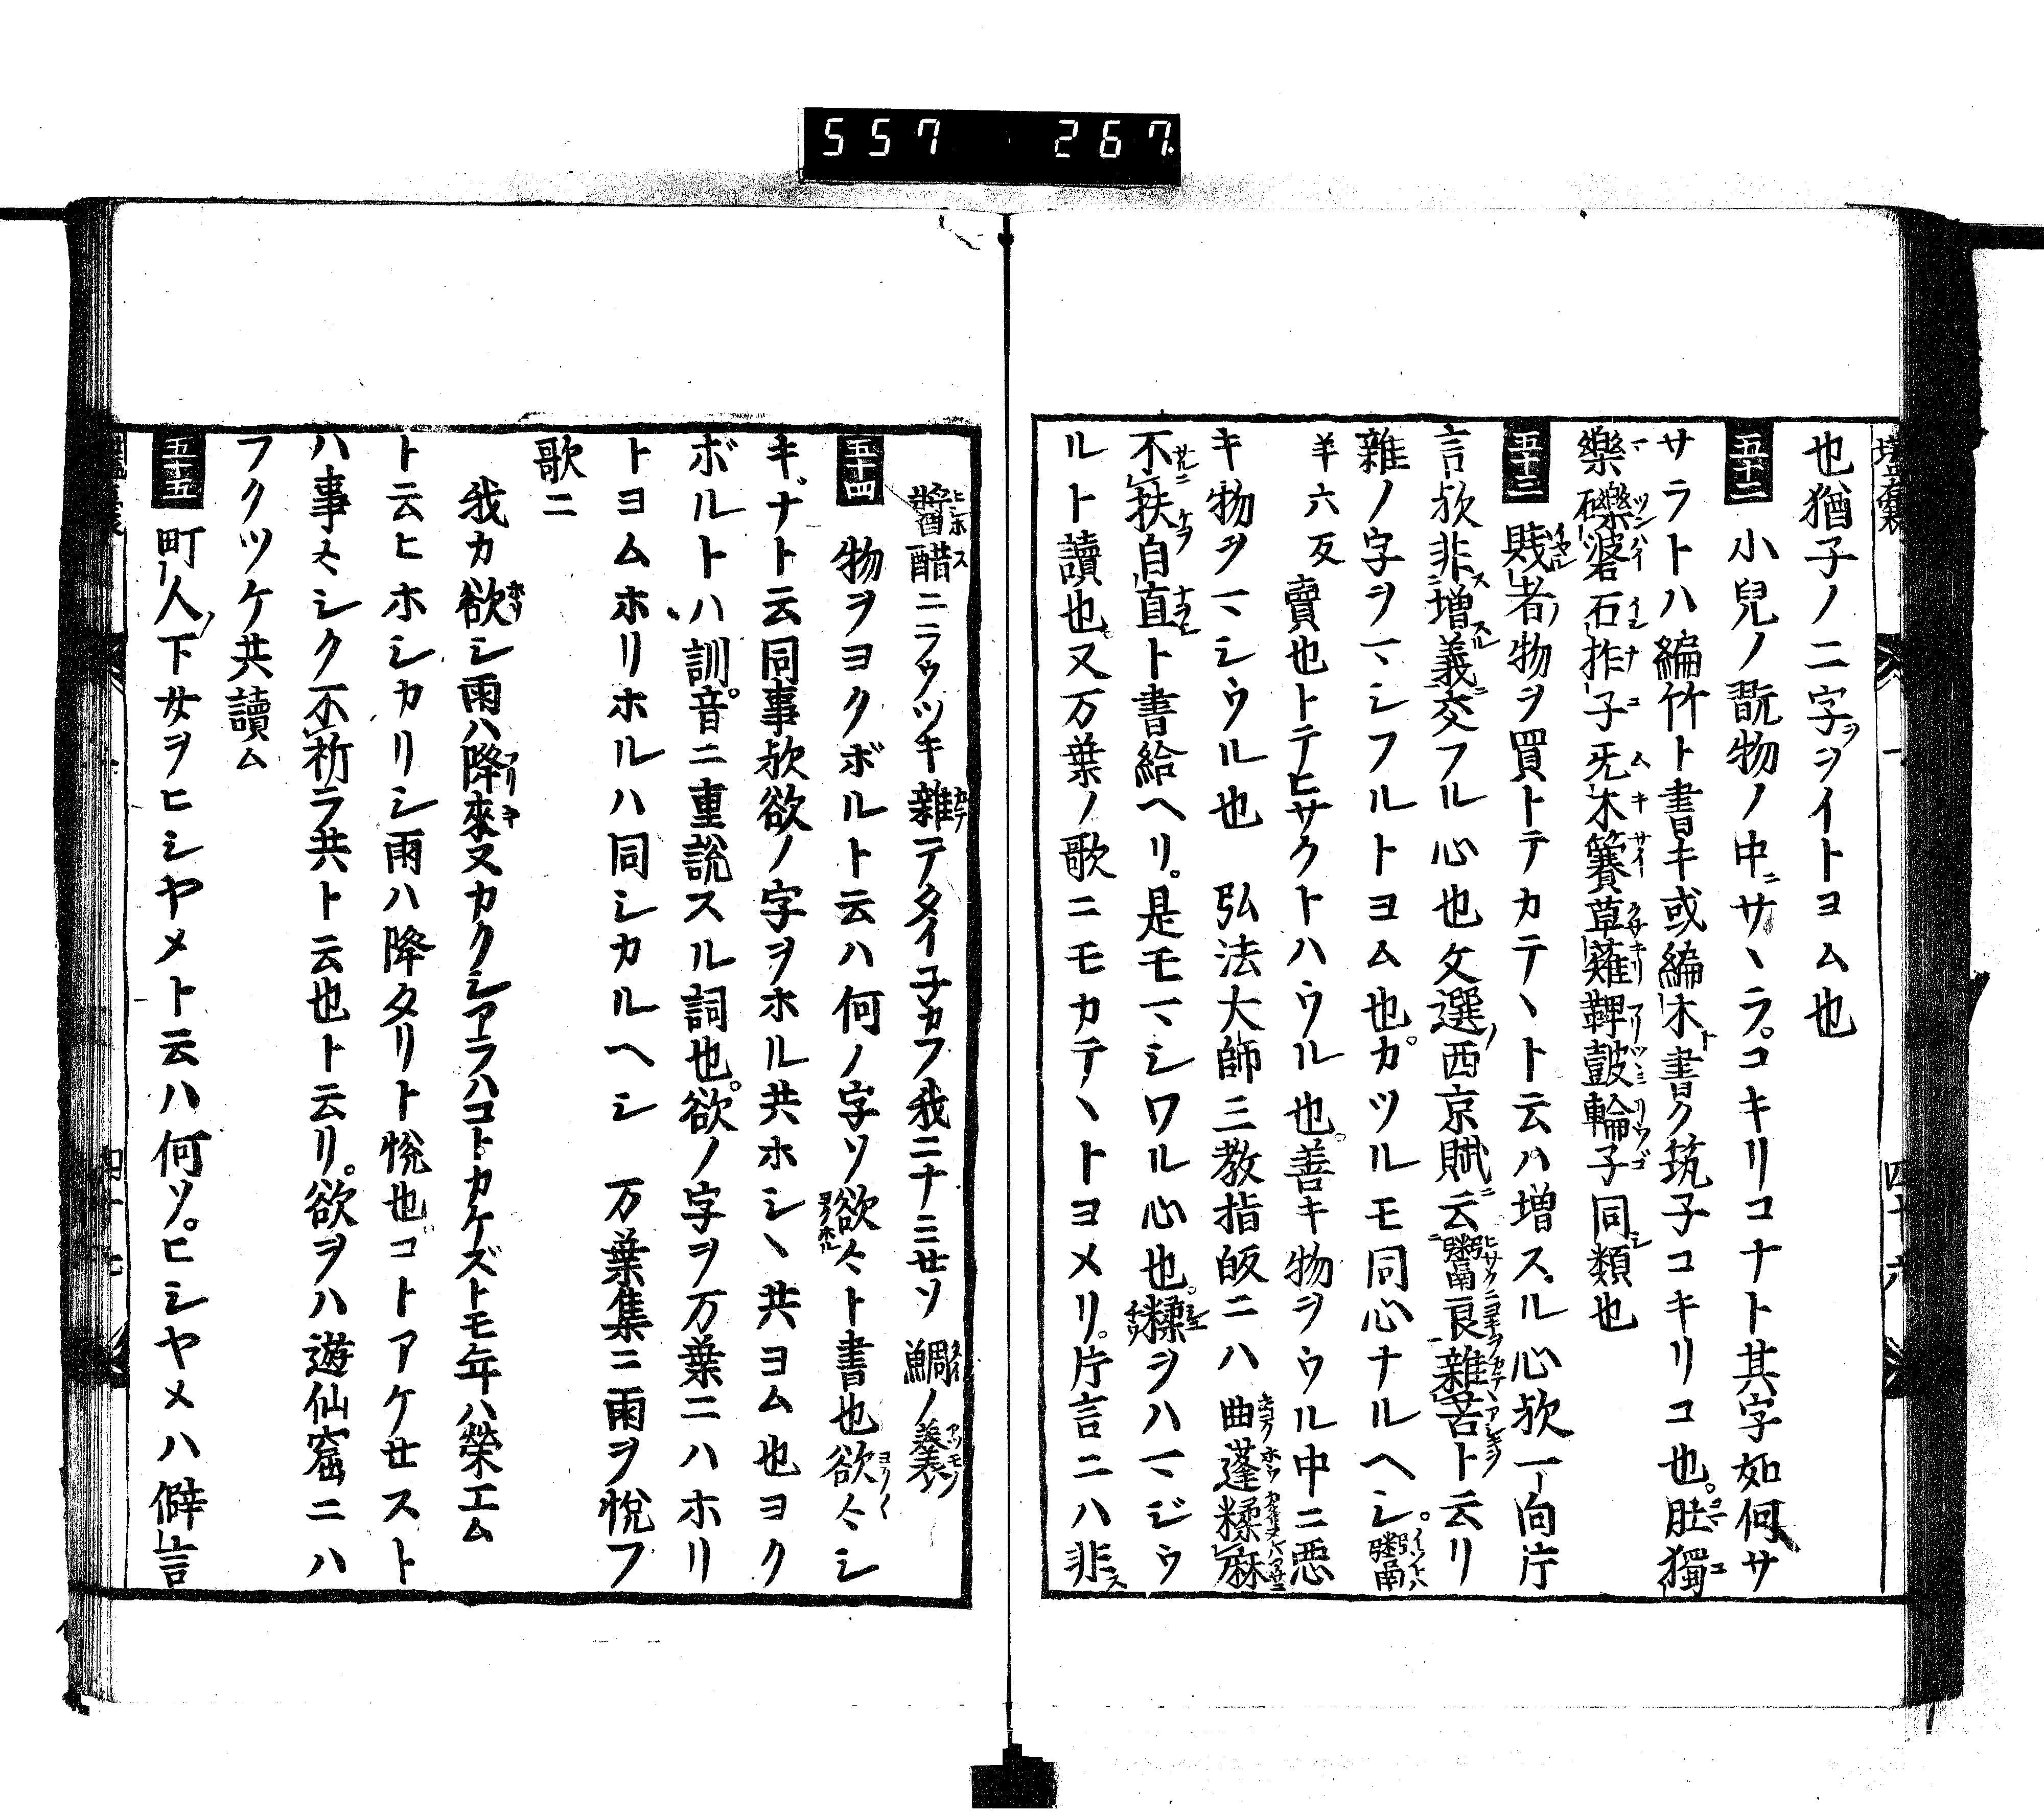 557 267
也猶子ノ二字ヲイトヨム也
五十二 小兒ノ翫物ノ中ニサヽラコキリコナト其字如何サ
サラトハ編竹ト書キ或編木ト書ク筑子コキリコ也肚獨
樂礫礫石拃子旡木簺草薙鞞皷輪子同シ類也
五十三 賎者ノ物ヲ買トテカテヽト云ハ増スル心欤一向片
言欤非ス増スル義ニ交フル心也文選ノ西京賦ニ云鬻良雜苦ト云リ
雜ノ字ヲマシフルトヨム也カツルモ同心ナルヘシ鬻
羊六反 賣也トテヒサクトハウル也善キ物ヲウル中ニ悪
キ物ヲマシウル也 弘法大師三教指皈ニハ曲蓬糅麻
不扶自直ト書給ヘリ是モマシワル心也糅ヲハマジウ
ルト讀也又万葉ノ歌ニモカテヽトヨメリ片言ニハ非ス
醬醋ニラウツキ雜テタイ子カフ我ニナミセソ鯛ノ羹
五十四 物ヲヨクボルト云ハ何ノ字ソ欲々ト書也欲々シ
キナト云同事欤欲ノ字ヲホル共ホシヽ共ヨム也ヨク
ボルトハ訓音ニ重說スル詞也欲ノ字ヲ万葉ニハホリ
トヨムホリホルハ同シカルヘシ 万葉集ニ雨ヲ悅フ
歌ニ
我カ欲シ雨ハ降來又カクシアラハコトカケズトモ年ハ榮エム
ト云ヒホシカリシ雨ハ降タリト悅也コトアケセスト
ハ事々シク不祈ラ共ト云也ト云リ欲ヲハ遊仙窟ニハ
フクツケ共讀ム
五十五 町人下女ヲヒシヤメト云ハ何ソヒシヤメハ僻言